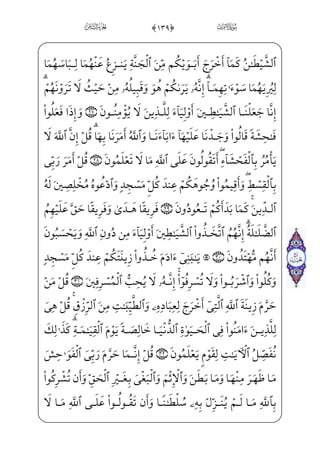 سورة الأعراف ﴿١٣٩﴾ الجزء الثامن
ٱلشَّيْطَٰنُ كَمَآ أَخْرَجَ أَبَوَيْكُم مِّنَ ٱلْجَنَّةِ يَنزِعُ عَنْهُمَا لِبَاسَهُمَا
لِيُرِيَهُمَا سَوْءَٰتِهِمَآ ۗ إِنَّهُۥ يَرَىٰكُمْ هُوَ وَقَبِيلُهُۥ مِنْ حَيْثُ لَا تَرَوْنَهُمْ ۗ
إِنَّا جَعَلْنَا ٱلشَّيَٰطِينَ أَوْلِيَآءَ لِلَّذِينَ لَا يُؤْمِنُونَ وَإِذَا فَعَلُوا۟
فَٰحِشَةً قَالُوا۟ وَجَدْنَا عَلَيْهَآ ءَابَآءَنَا وَٱللَّهُ أَمَرَنَا بِهَا ۗ قُلْ إِنَّ ٱللَّهَ لَا
يَأْمُرُ بِٱلْفَحْشَآءِ ۖ أَتَقُولُونَ عَلَى ٱللَّهِ مَا لَا تَعْلَمُونَ قُلْ أَمَرَ رَبِّى
بِٱلْقِسْطِ ۖ وَأَقِيمُوا۟ وُجُوهَكُمْ عِندَ كُلِّ مَسْجِدٍ وَٱدْعُوهُ مُخْلِصِينَ لَهُ
ٱلدِّينَ ۚ كَمَا بَدَأَكُمْ تَعُودُونَ فَرِيقًا هَدَىٰ وَفَرِيقًا حَقَّ عَلَيْهِمُ
ٱلضَّلَٰلَةُ ۗ إِنَّهُمُ ٱتَّخَذُوا۟ ٱلشَّيَٰطِينَ أَوْلِيَآءَ مِن دُونِ ٱللَّهِ وَيَحْسَبُونَ
أَنَّهُم مُّهْتَدُونَ ۞ يَٰبَنِىٓ ءَادَمَ خُذُوا۟ زِينَتَكُمْ عِندَ كُلِّ مَسْجِدٍ
وَكُلُوا۟ وَٱشْرَبُوا۟ وَلَا تُسْرِفُوٓا۟ ۚ إِنَّهُۥ لَا يُحِبُّ ٱلْمُسْرِفِينَ قُلْ مَنْ
حَرَّمَ زِينَةَ ٱللَّهِ ٱلَّتِىٓ أَخْرَجَ لِعِبَادِهِۦ وَٱلطَّيِّبَٰتِ مِنَ ٱلرِّزْقِ ۚ قُلْ هِىَ
لِلَّذِينَ ءَامَنُوا۟ فِى ٱلْحَيَوٰةِ ٱلدُّنْيَا خَالِصَةً يَوْمَ ٱلْقِيَٰمَةِ ۗ كَذَٰلِكَ
نُفَصِّلُ ٱلْءَايَٰتِ لِقَوْمٍ يَعْلَمُونَ قُلْ إِنَّمَا حَرَّمَ رَبِّىَ ٱلْفَوَٰحِشَ
مَا ظَهَرَ مِنْهَا وَمَا بَطَنَ وَٱلْإِثْمَ وَٱلْبَغْىَ بِغَيْرِ ٱلْحَقِّ وَأَن تُشْرِكُوا۟
بِٱللَّهِ مَا لَمْ يُنَزِّلْ بِهِۦ سُلْطَٰنًا وَأَن تَقُولُوا۟ عَلَى ٱللَّهِ مَا لَا